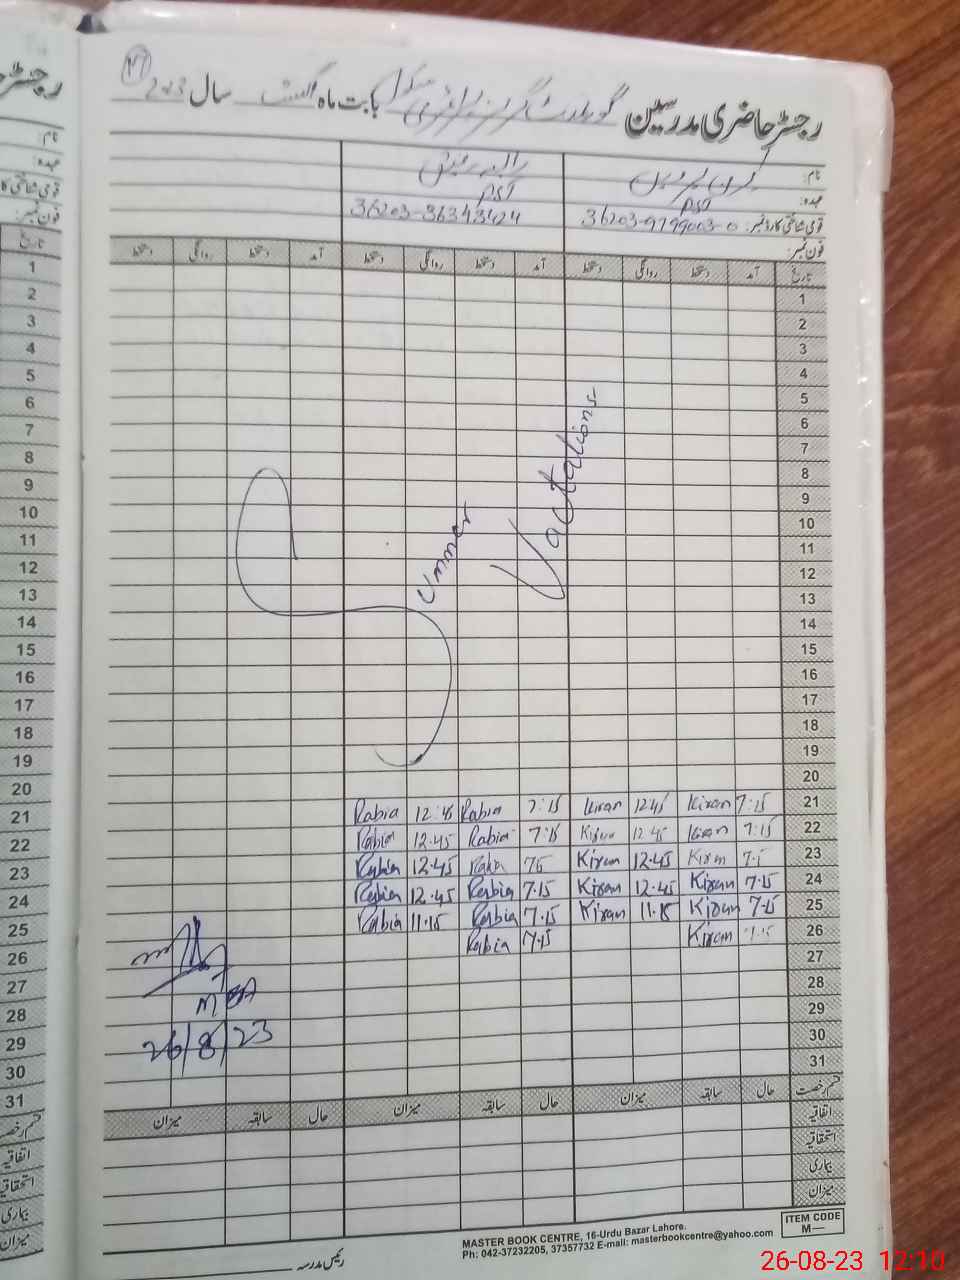 رجسٹر حاضری مدرسین گورنمنٹ گرلز پرائمری سکول بابت ماہ اگست سال 2023
نام: کرن پروین
عہدہ: PST PST
قومی شناختی کارڈ نمبر: 36203-9799003-0 36203-36343424
فون نمبر:
تاریخ آمد دستخط روانگی دستخط آمد دستخط روانگی دستخط آمد دستخط روانگی دستخط
1 1
2 2
3 3
4 4
5 5
6 6
7 7
8 8
9 9
10 10
11 11
12 12
13 13
14 14
15 15
16 16
17 17
18 18
19 19
20 20
Summer Vacations
21 Rabia 12:45 Rabia 7:15 Kiran 12 45 Kiran 7:15 21
22 Rabia 12.45 Rabia 7:15 Kiran 12 45 Kiran 7:15 22
23 Rabia 12.45 Rabia Kiran 12.45 Kiran 23
24 Rabia 12.45 Rabia 7.15 Kiran 12.45 Kiran 7.15 24
25 Rabia 11.15 Rabia 7.15 Kiran 11.15 Kiran 7.15 25
26 Rabia 7.15 Kiran 7.15 26
27 27
28 28
29 29
30 30
31 31
26/8/23
قسم رخصت حال سابقہ میزان حال سابقہ میزان حال سابقہ میزان
اتفاقیہ
استحقاقیہ
بیماری
میزان
رئیس مدرسہ
MASTER BOOK CENTRE, 16-Urdu Bazar Lahore.
Ph: 042-37232205, 37357732 E-mail: masterbookcentre@yahoo.com
ITEM CODE
M—
26-08-23 12:10